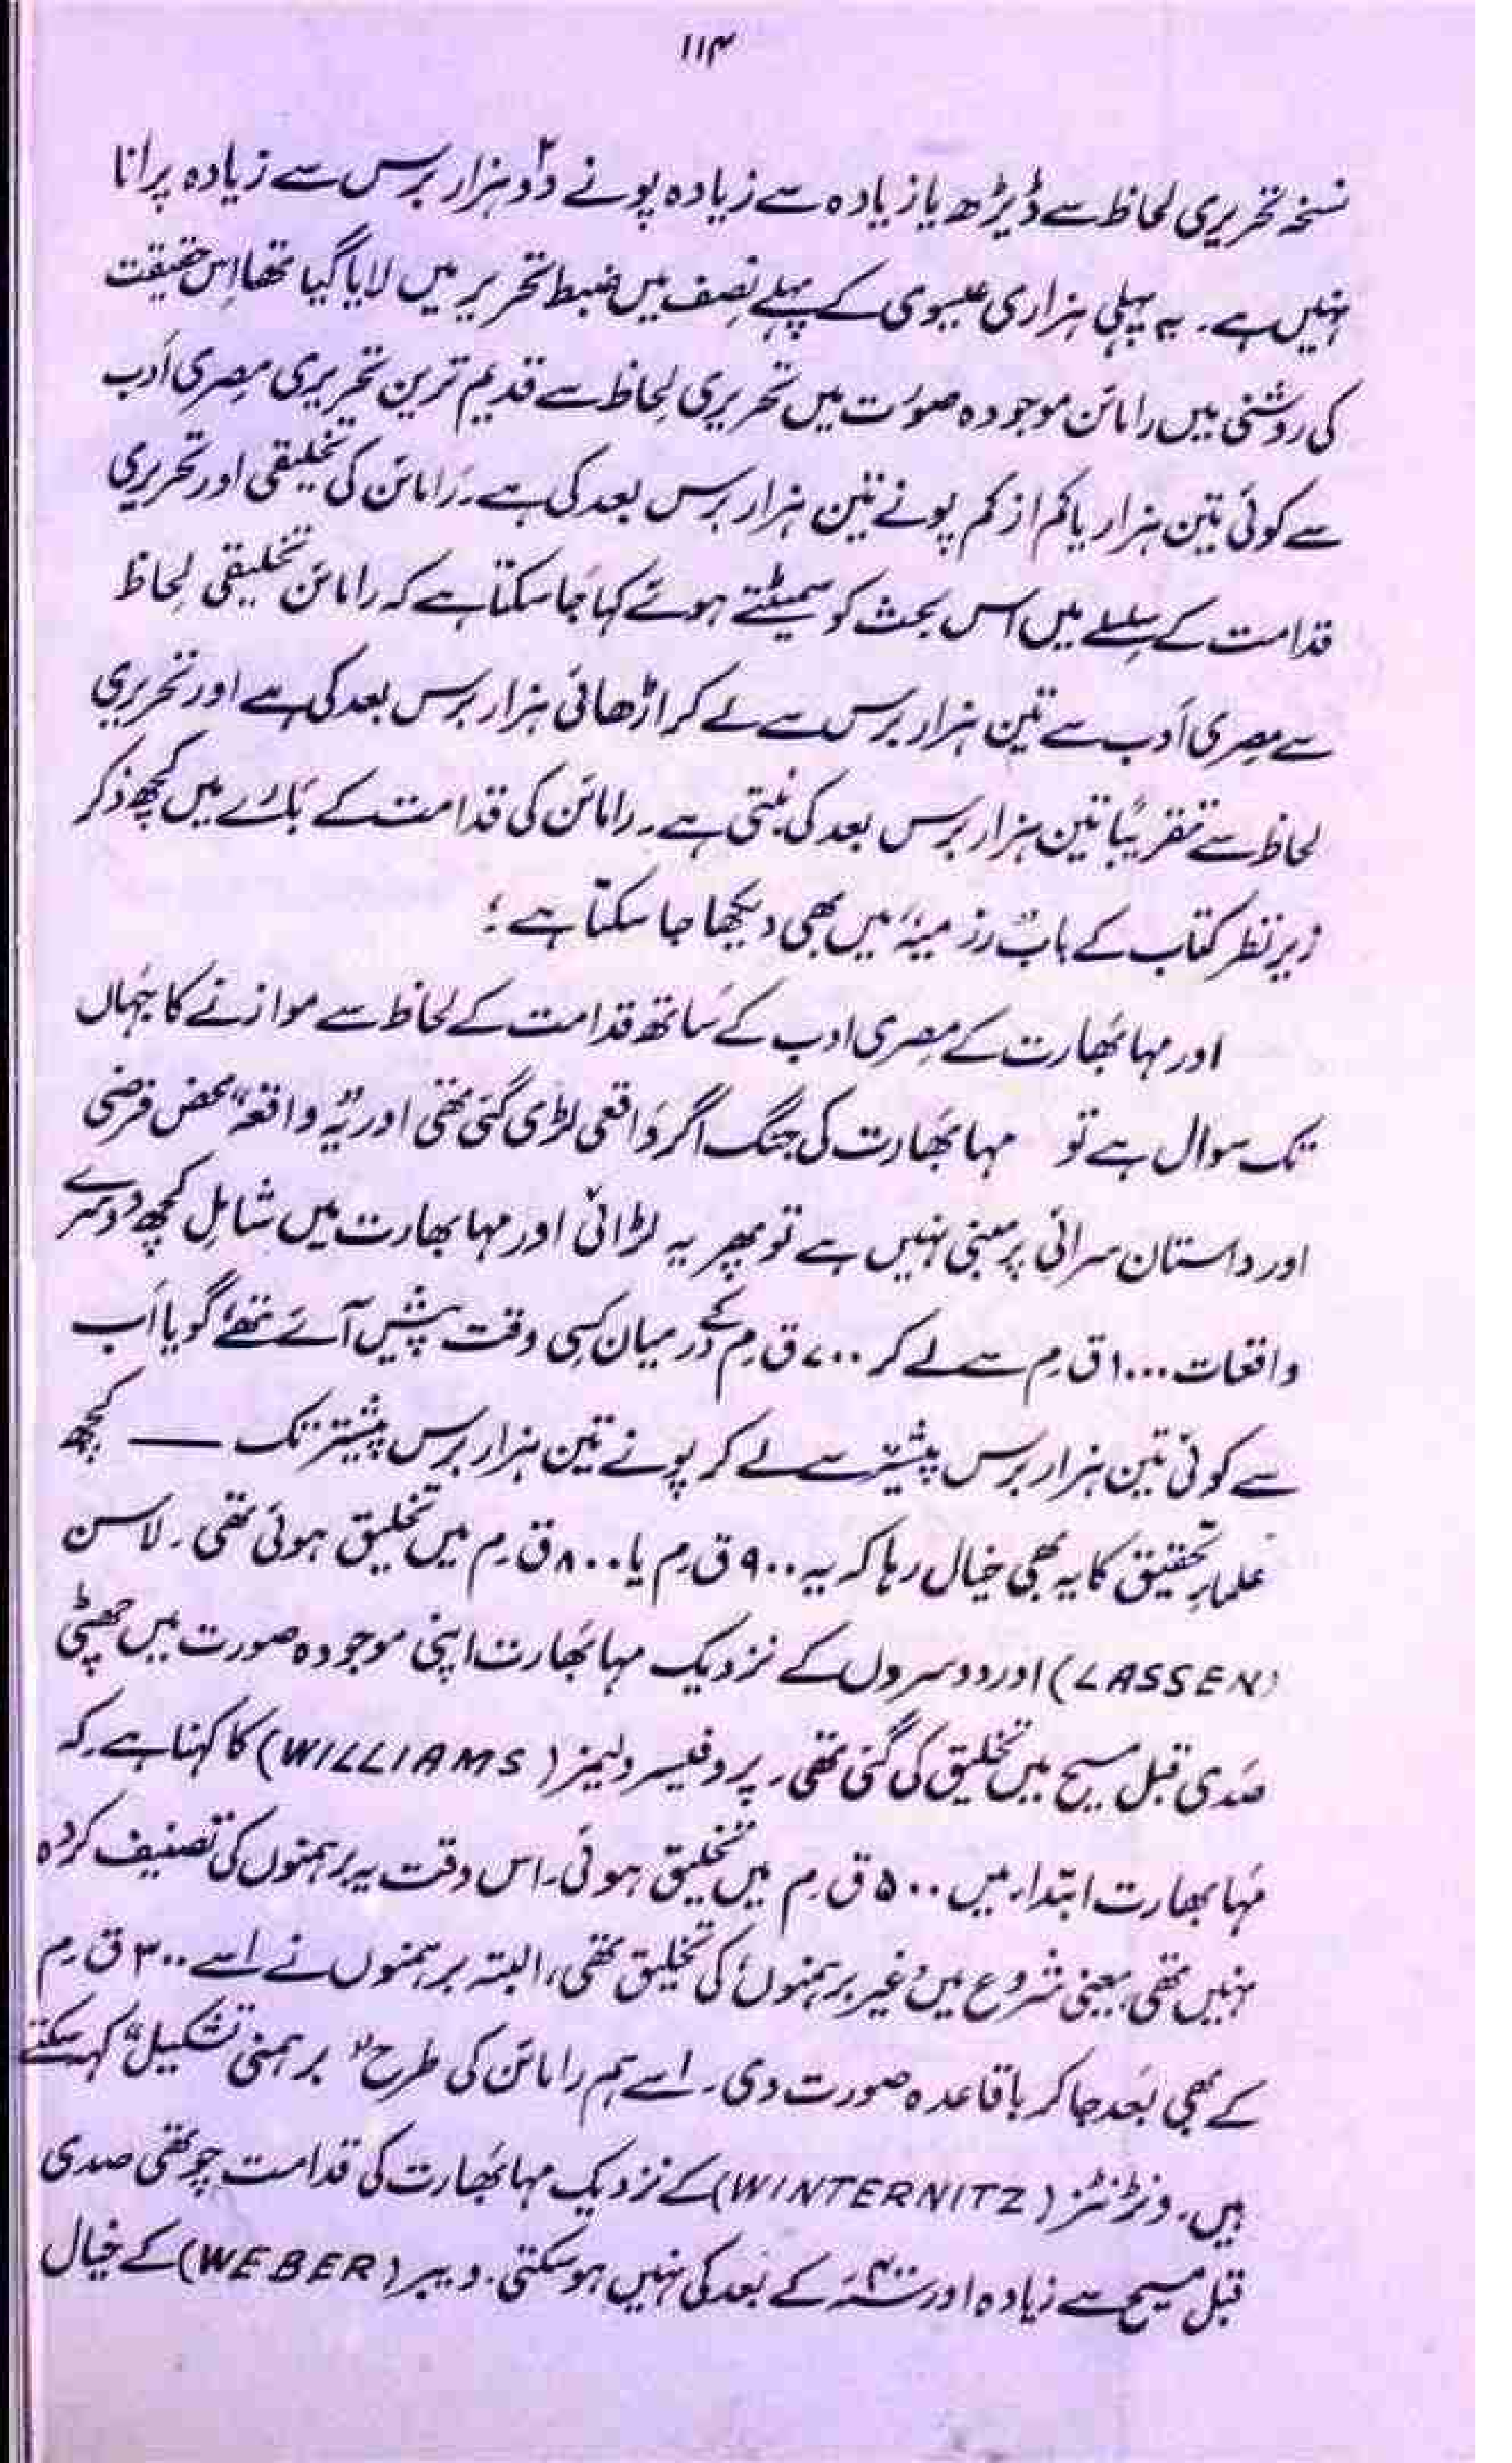 ۱۱۴
نسخہ تحریری لحاظ سے ڈیڑھ یا زیادہ سے زیادہ پونے دو۲ ہزار برس سے زیادہ پرانا
نہیں ہے۔ یہ پہلی ہزاری عیسوی کے پہلے نصف میں ضبط تحریر میں لایا گیا تھا اِس حقیقت
کی روشنی میں رامائن موجودہ صورت میں تحریری لحاظ سے قدیم ترین تحریری مِصری اَدب
سے کوئی تین ہزار یا کم از کم پونے تین ہزار برس بعد کی ہے۔ رامائن کی تخلیقی اور تحریری
قدامت کے سِلسلے میں اس بحث کو سمیٹتے ہوئے کہا جا سکتا ہے کہ رامائن تخلیقی لحاظ
سے مِصری اَدب سے تین ہزار برس سے لے کر اڑھائی ہزار برس بعد کی ہے اور تحریری
لحاظ سے تقریباً تین ہزار برس بعد کی بنتی ہے۔ رامائن کی قدامت کے بارے میں کچھ ذکر
زیرِ نظر کتاب کے باب "رزمیہ" میں بھی دیکھا جا سکتا ہے ؛
اور مہا بھارت کے مِصری ادب کے ساتھ قدامت کے لحاظ سے موازنے کا جہاں
تک سوال ہے تو مہا بھارت کی جنگ اگر واقعی لڑی گئی تھی اور یہ "واقعہ" محض فرضی
اور داستان سرائی پر مبنی نہیں ہے تو پھر یہ لڑائی اور مہا بھارت میں شامِل کچھ دوسرے
واقعات ۱۰۰۰ ق م سے لے کر ۷۰۰ ق م کے درمیان کِسی وقت پیش آئے تھے، گویا اَب
سے کوئی تین ہزار برس پیشتر سے لے کر پونے تین ہزار برس پیشتر تک —— کچھ
علماءِ تحقیق کا یہ بھی خیال رہا کہ یہ ۹۰۰ ق م یا ۸۰۰ ق م میں تخلیق ہوئی تھی۔ لاسن
(LASSEN) اور دوسروں کے نزدیک مہا بھارت اپنی موجودہ صورت میں چھٹی
صَدی قبل مسیح میں تخلیق کی گئی تھی۔ پروفیسر ولیمز (WILLIAMS) کا کہنا ہے۔ کہ
مہا بھارت ابتداء میں ۵۰۰ ق م میں تخلیق ہوئی۔ اس وقت یہ برہمنوں کی تصنیف کردہ
نہیں تھی۔ یعنی شروع میں 'غیر برہمنوں' کی تخلیق تھی، البتہ برہمنوں نے اسے ۳۰۰ ق م
کے بھی بَعد جا کر باقاعدہ صورت دی۔ اسے ہم رامائن کی طرح "برہمنی تشکیل" کہہ سکتے
ہیں۔ ونٹرنٹز (WINTERNITZ) کے نزدیک مہا بھارت کی قدامت چوتھی صدی
قبل مسیح سے زیادہ اور ۴۰۰ء کے بعد کی نہیں ہو سکتی۔ ویبر (WEBER) کے خیال